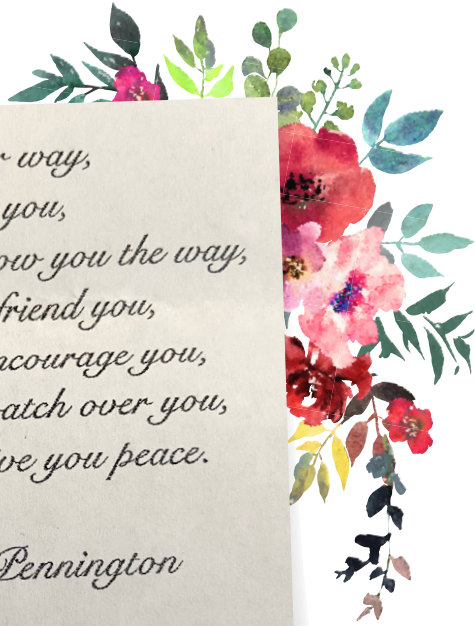 way,
you,
you the way,
friend you,
encourage you,
watch over you,
you peace.
Pennington